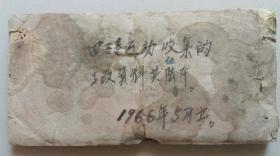 四清运动收集的
土改资料共伍本
1966年5月立。